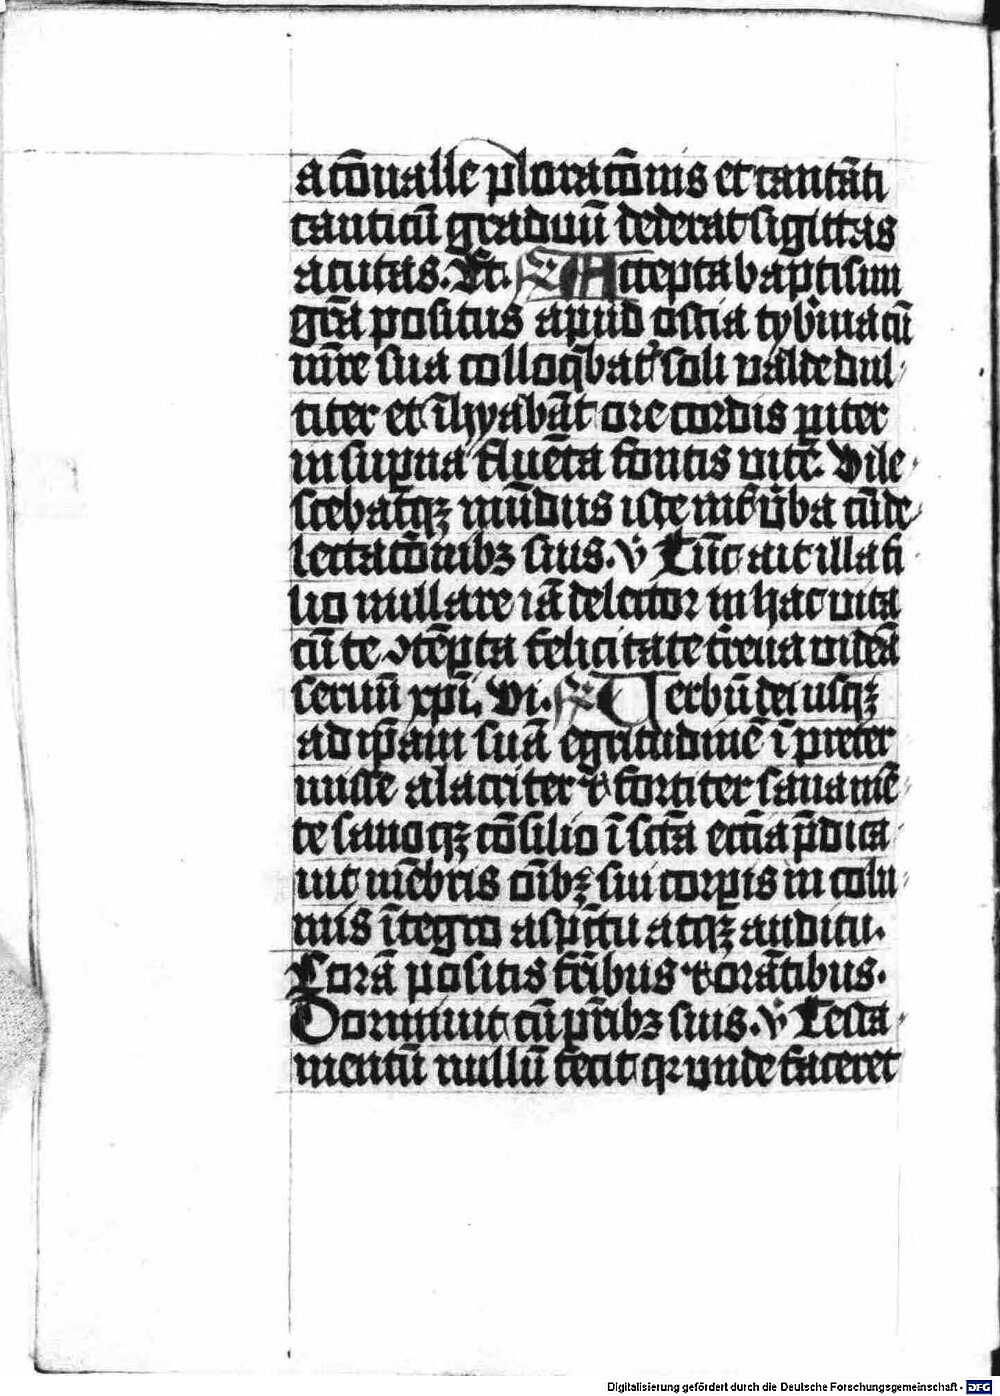 a cōualle ploracōnis et cantāti
canticū graduū dederat sigittas
acutas. Et. R Accepta baptismi
grā positus apud ostia tyb'ina cū
mr̄e sua colloq̄bat' soli ualde dul-
citer et īhyābāt ore cordis pit̄er
in sup̄na fluēta fontis vite. Vile-
scebatqꝫ mūdus iste int̄ v̄ba cū de-
lectacōnibꝫ suis. v̇ Tūc ait illa fi
lio nulla re iā delector in hac uita
cū te ꝯtēpta felicitate t̄rena videā
seruū xp̄i. Vi. R Verbū dei usqꝫ
ad ip̄am suā egritudinē īpreter
misse alacriter ⁊ fortiter sana mē-
te sanoqꝫ cōsilio ī sctā ecc̄ia p̄dica-
uit mēbris oīb̄ꝫ sui corꝑis in colu-
mis ītegro aspc̄tu atqꝫ auditu.
Corā positis fr̄ibus ⁊ orātibus.
Dormiuit cū pr̄ibꝫ suis. v̇ Testa-
mentū nullū fecit qꝛ vnde faceret
Digitalisierung gefördert durch die Deutsche Forschungsgemeinschaft - DFG